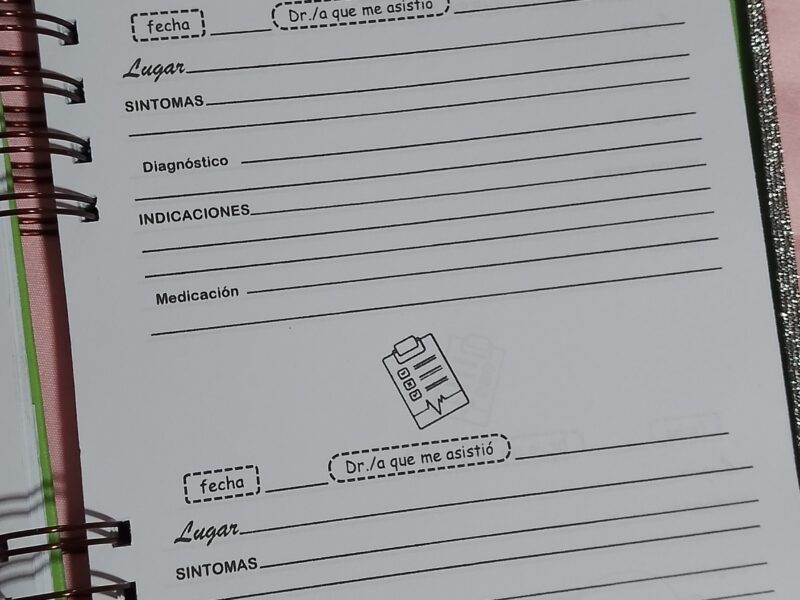 fecha Dr./a que me asistió
Lugar
SINTOMAS
Diagnóstico
INDICACIONES
Medicación
fecha Dr./a que me asistió
Lugar
SINTOMAS